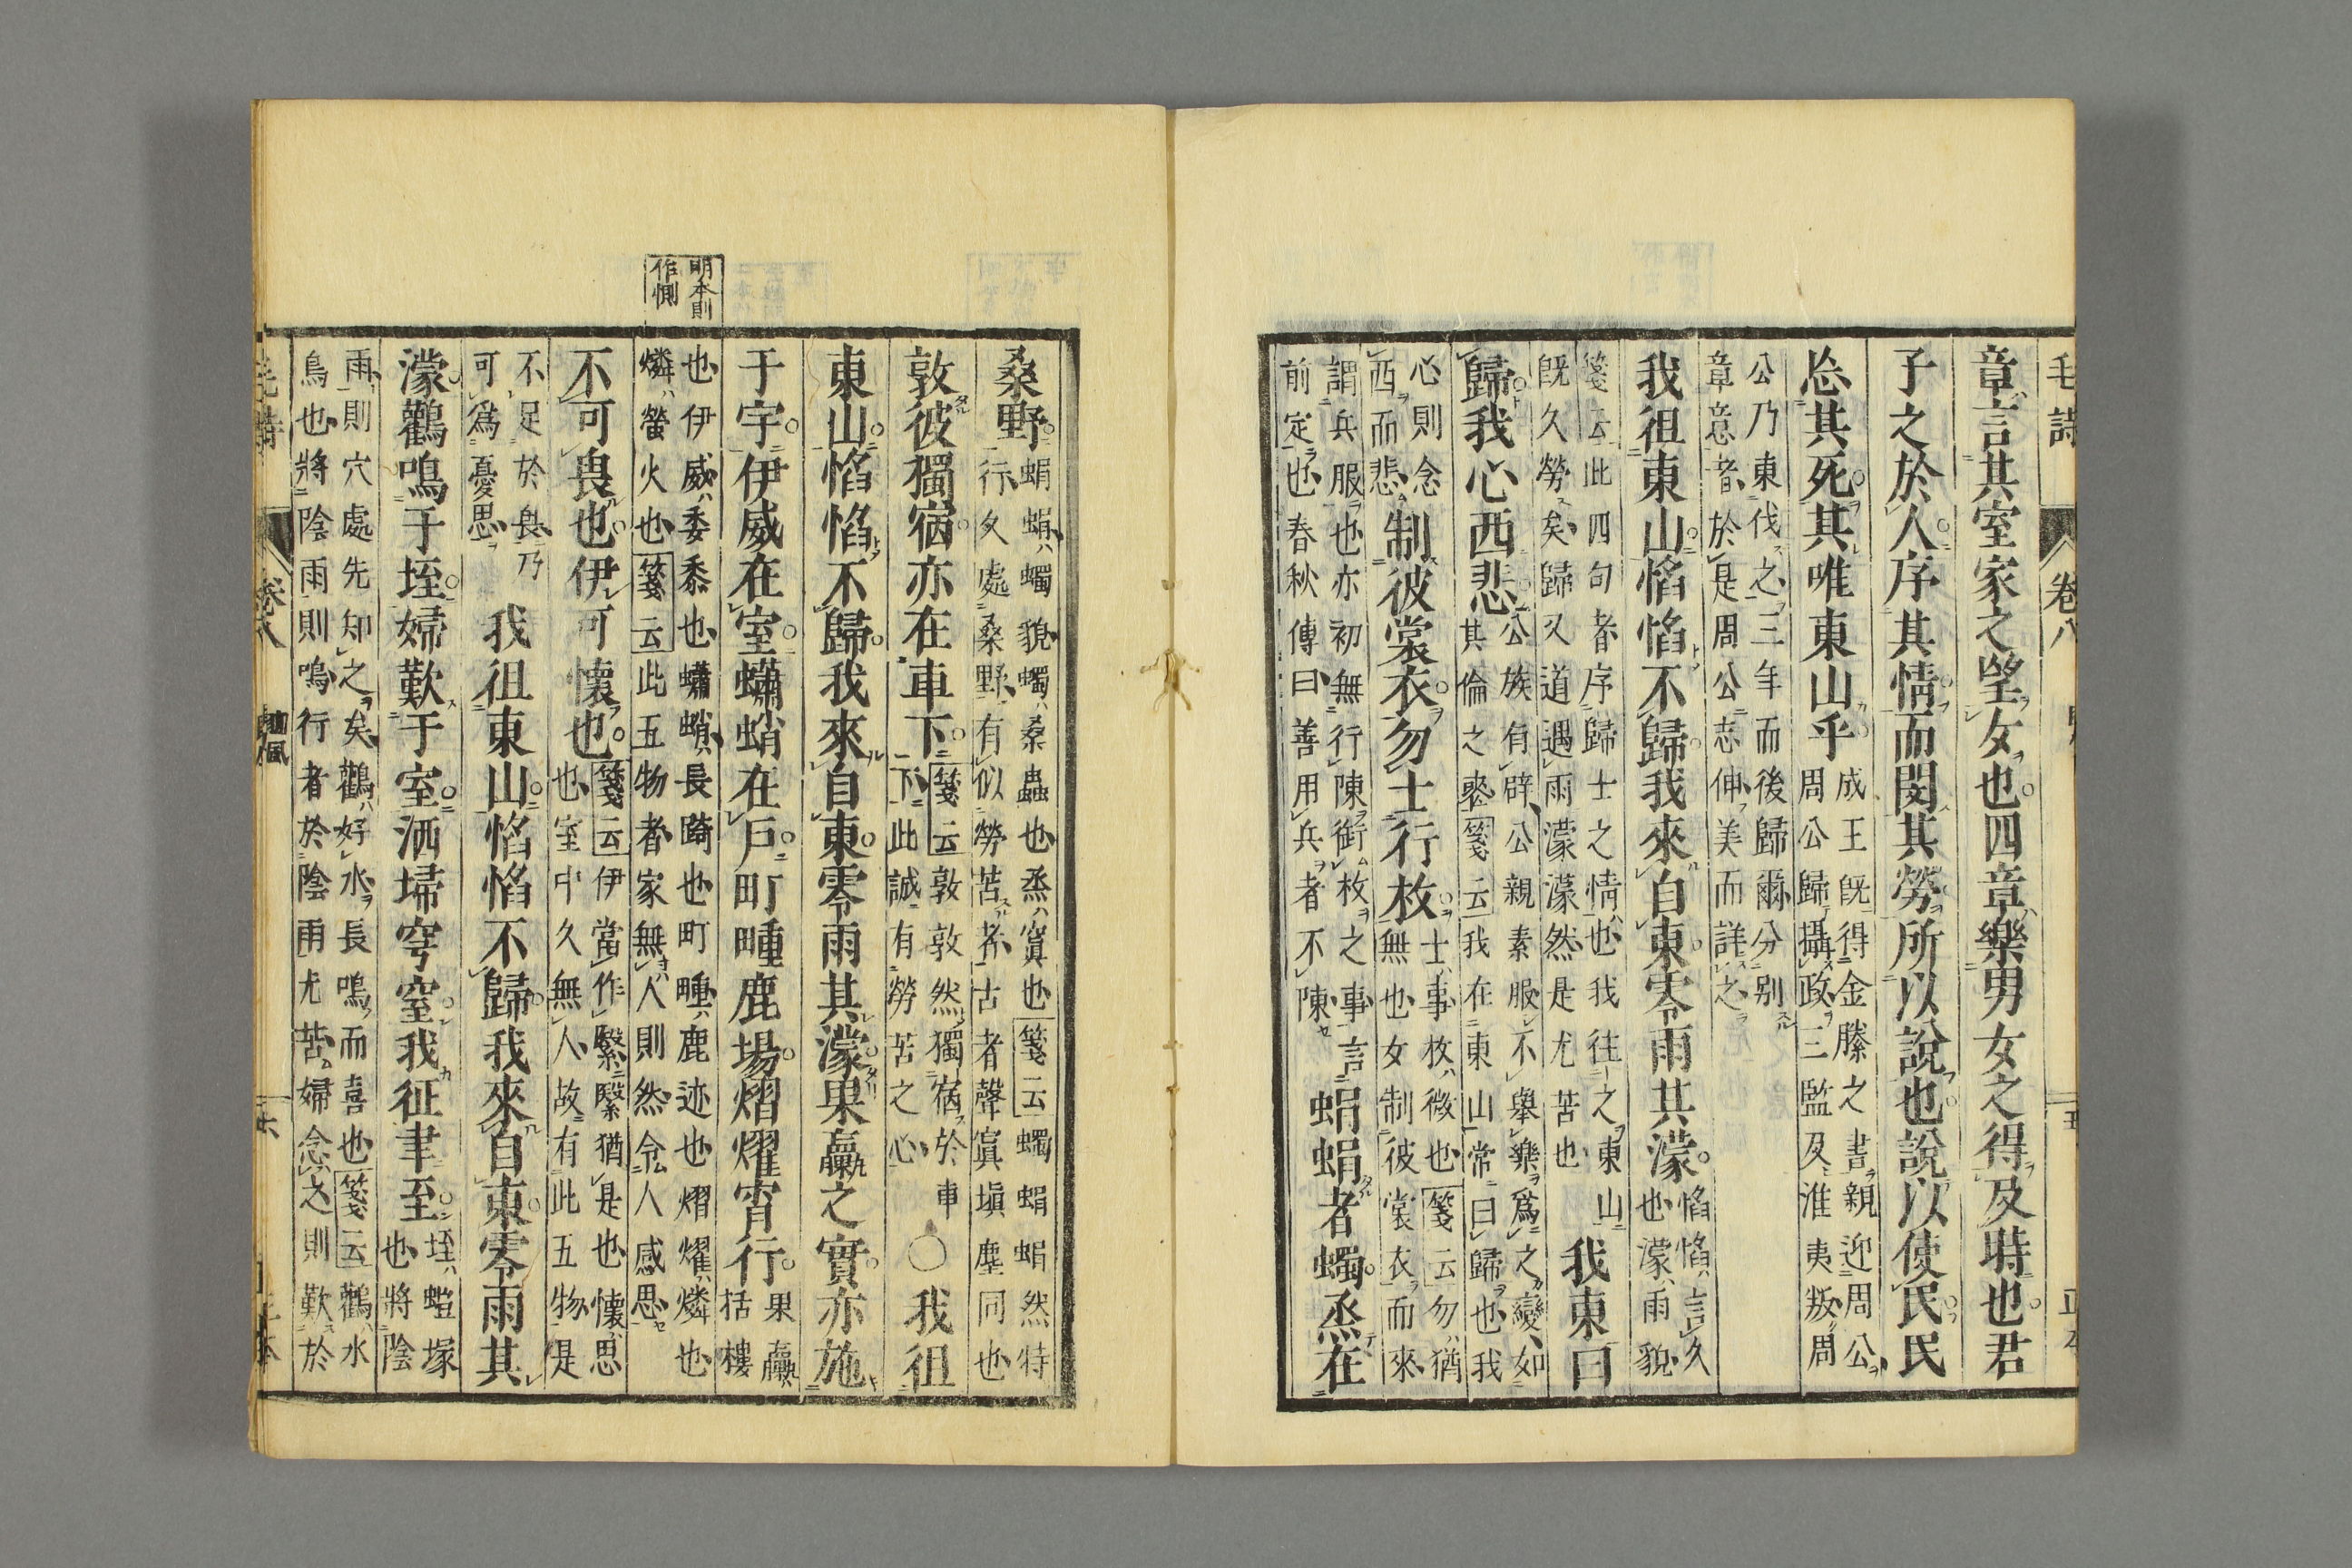 毛詩
卷八
五
章言其室家之望女也四章樂男女之得及時也君
子之於人序其情而閔其勞所以說也說以使民民
忘其死其唯東山乎
成王既得金縢之書親迎周公
周公歸攝政三監及淮夷叛周
公乃東伐之三年而後歸爾分別
章意者於是周公志伸美而詳之
我徂東山慆慆不歸我來自東零雨其濛
慆慆言久
也濛雨貌
箋云此四句者序歸士之情也我往之東山
既久勞矣歸又道遇雨濛濛然是尤苦也
我東曰
歸我心西悲
公族有辟公親素服不舉樂爲之變如
其倫之喪箋云我在東山常曰歸也我
心則念
西而悲
制彼裳衣勿士行枚
士事枚微也箋云勿猶
無也女制彼裳衣而來
謂兵服也亦初無行陳銜枚之事言
前定也春秋傳曰善用兵者不陳
蜎蜎者蠋烝在
桑野
蜎蜎蠋貌蠋桑蟲也烝寘也箋云蠋蜎蜎然特
行久處桑野有似勞苦者古者聲寘塡塵同也
敦彼獨宿亦在車下
箋云敦敦然獨宿於車
下此誠有勞苦之心
○我徂
東山慆慆不歸我來自東零雨其濛果臝之實亦施
于宇伊威在室蠨蛸在戶町畽鹿場熠燿宵行
果臝
栝樓
明本則
作惻
也伊威委黍也蠨蛸長踦也町畽鹿迹也熠燿燐也
燐螢火也箋云此五物者家無人則然令人感思
不可畏也伊可懷也
箋云伊當作繄繄猶是也懷思
也室中久無人故有此五物是
不足於畏乃
可爲憂思
我徂東山慆慆不歸我來自東零雨其
濛鸛鳴于垤婦歎于室洒埽穹窒我征聿至
垤螘塚
也將陰
雨則穴處先知之矣鸛好水長鳴而喜也箋云鸛水
鳥也將陰雨則鳴行者於陰雨尤苦婦念之則歎於
毛詩
卷八
豳風
六